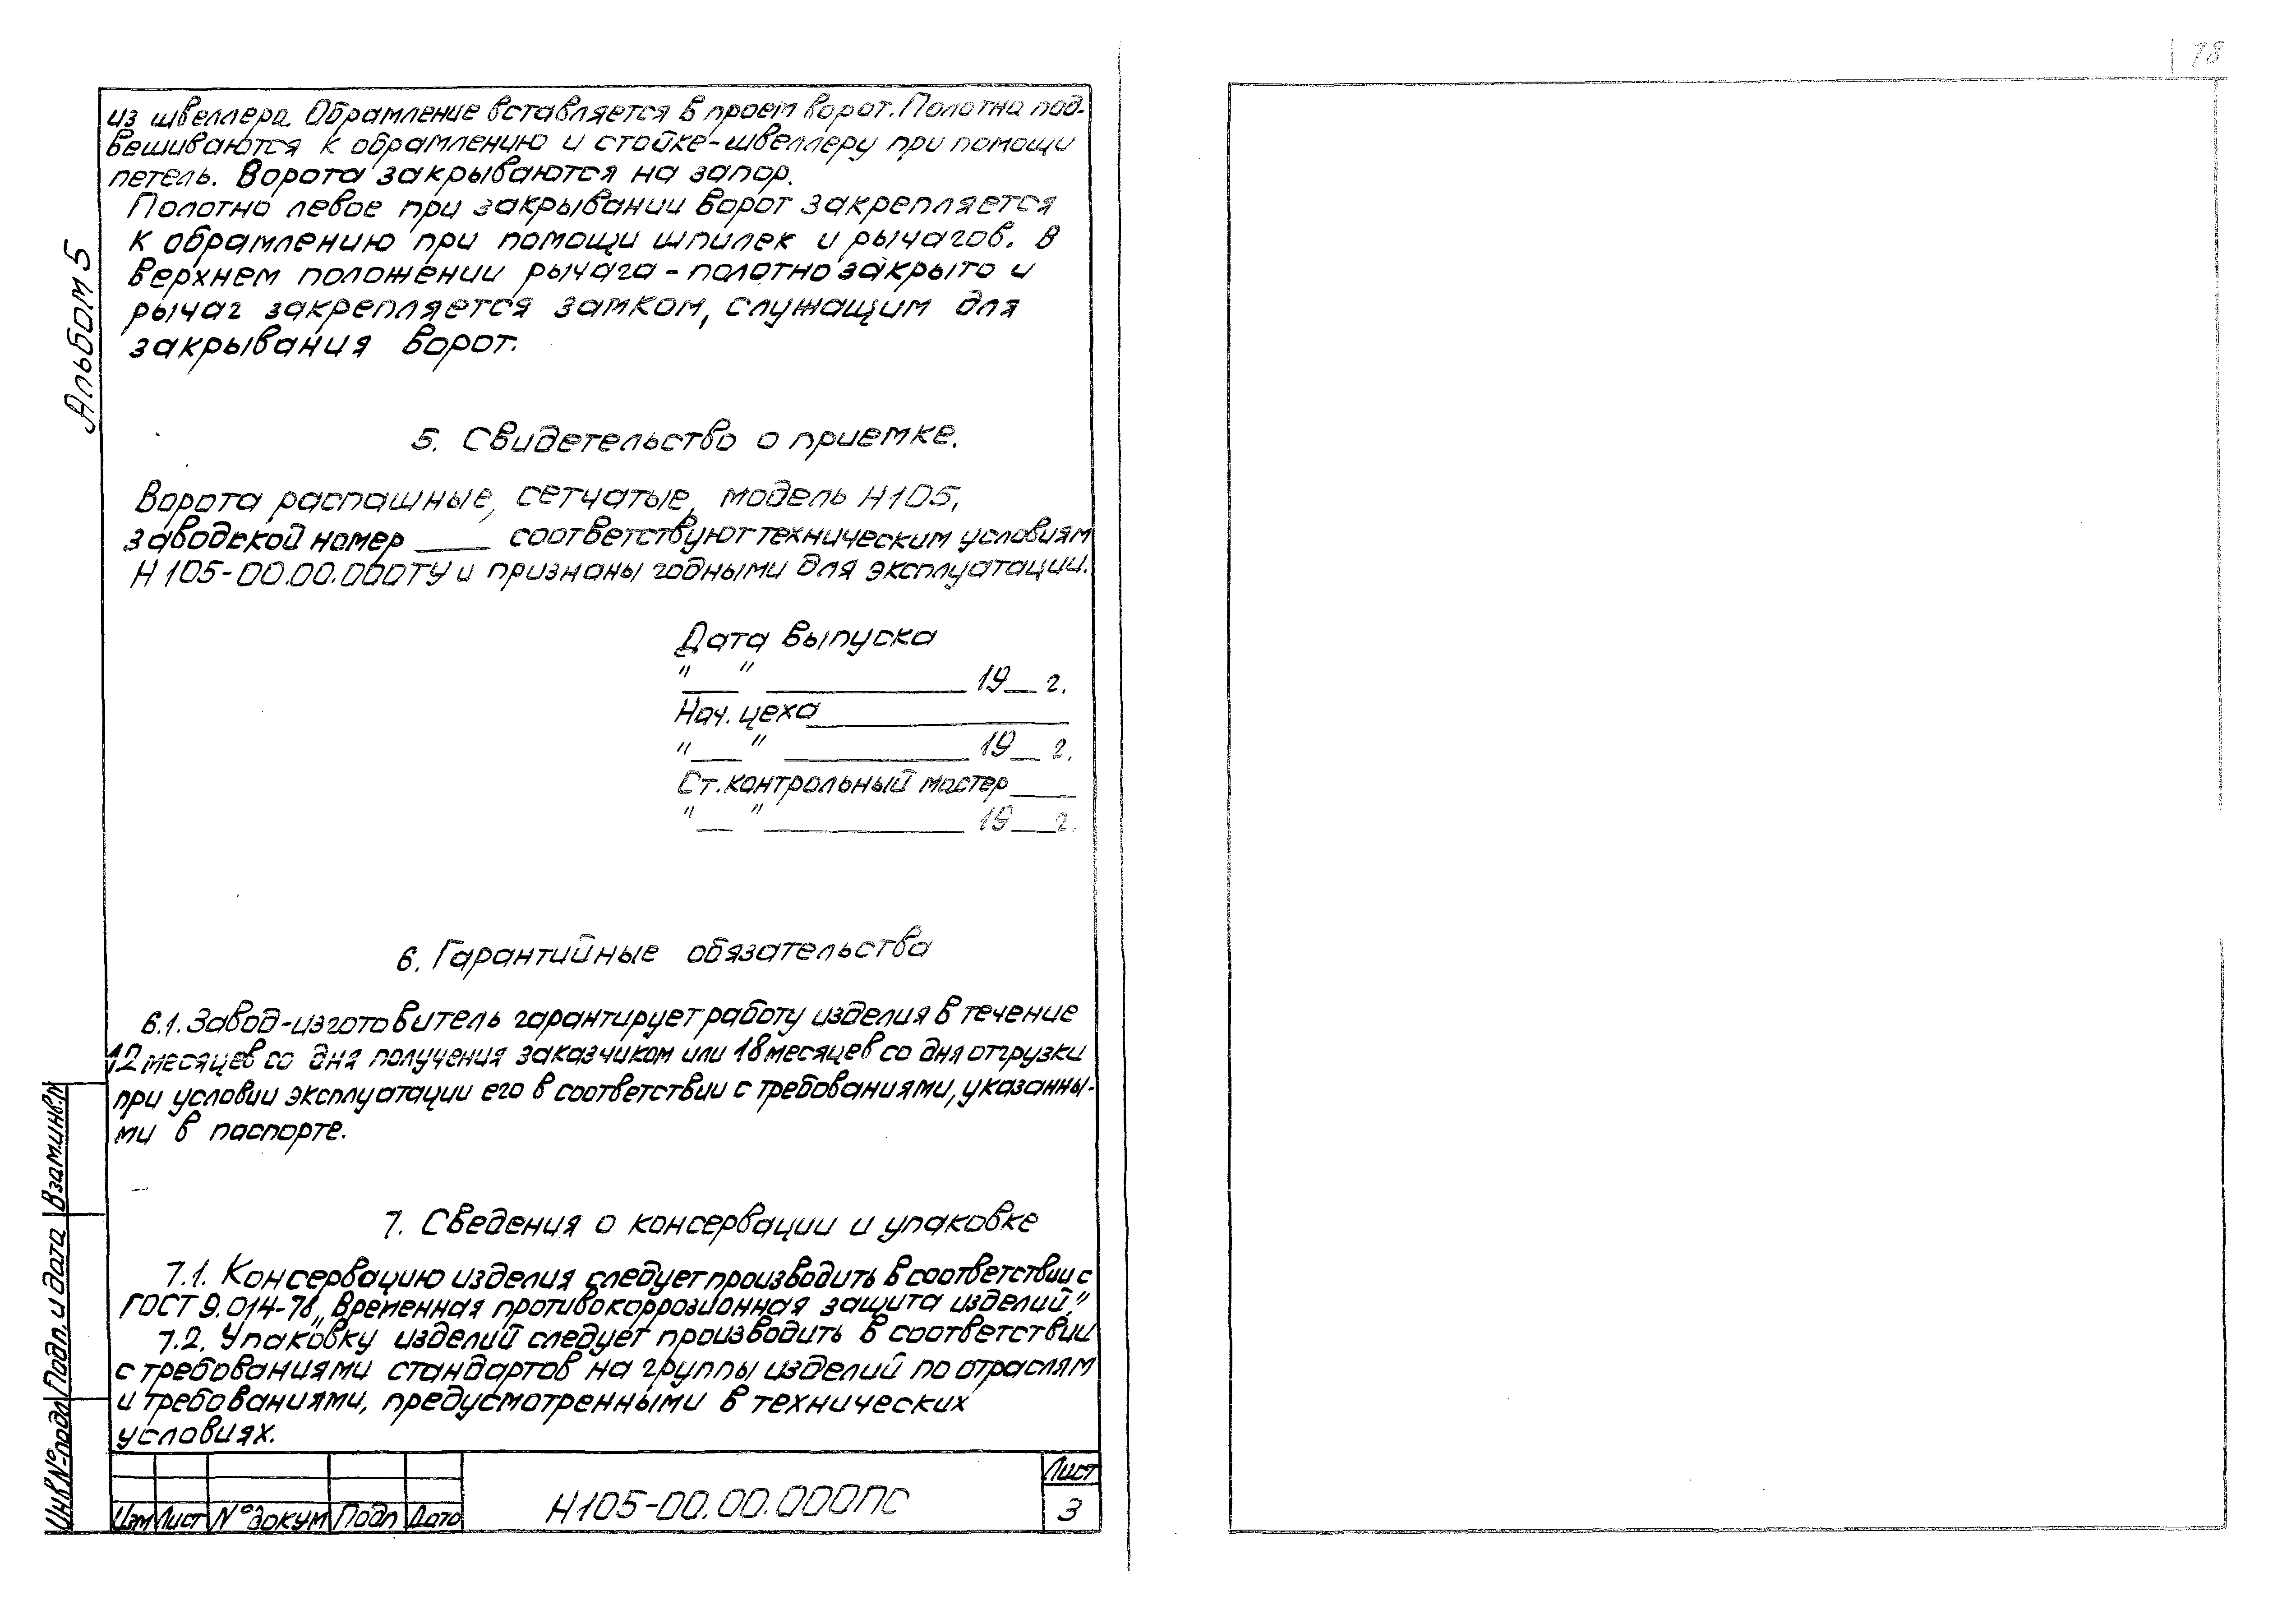 78
из швеллера. Обрамление вставляется в проем ворот. Полотна под-
вешиваются к обрамлению и стойке-швеллеру при помощи
петель. Ворота закрываются на запор.
Полотно левое при закрывании ворот закрепляется
к обрамлению при помощи шпилек и рычагов. В
верхнем положении рычага - полотно закрыто и
рычаг закрепляется замком, служащим для
закрывания ворот.
Альбом 5
5. Свидетельство о приемке.
Ворота распашные, сетчатые, модель Н105,
заводской номер ____ соответствуют техническим условиям
Н105-00.00.000ТУ и признаны годными для эксплуатации.
Дата выпуска
"___" __________ 19__ г.
Нач. цеха__________
"___" __________ 19__ г.
Ст. контрольный мастер____
"___" __________ 19__ г.
6. Гарантийные обязательства
6.1. Завод-изготовитель гарантирует работу изделия в течение
12 месяцев со дня получения заказчиком или 18 месяцев со дня отгрузки
при условии эксплуатации его в соответствии с требованиями, указанны-
ми в паспорте.
7. Сведения о консервации и упаковке
7.1. Консервацию изделия следует производить в соответствии с
ГОСТ 9.014-78 „Временная противокоррозионная защита изделий."
7.2. Упаковку изделий следует производить в соответствии
с требованиями стандартов на группы изделий по отраслям
и требованиями, предусмотренными в технических
условиях.
Инв № подл Подп. и дата Взам.инв.N
Изм Лист № докум Подп Дата
Н105-00.00.000ПС
Лист
3